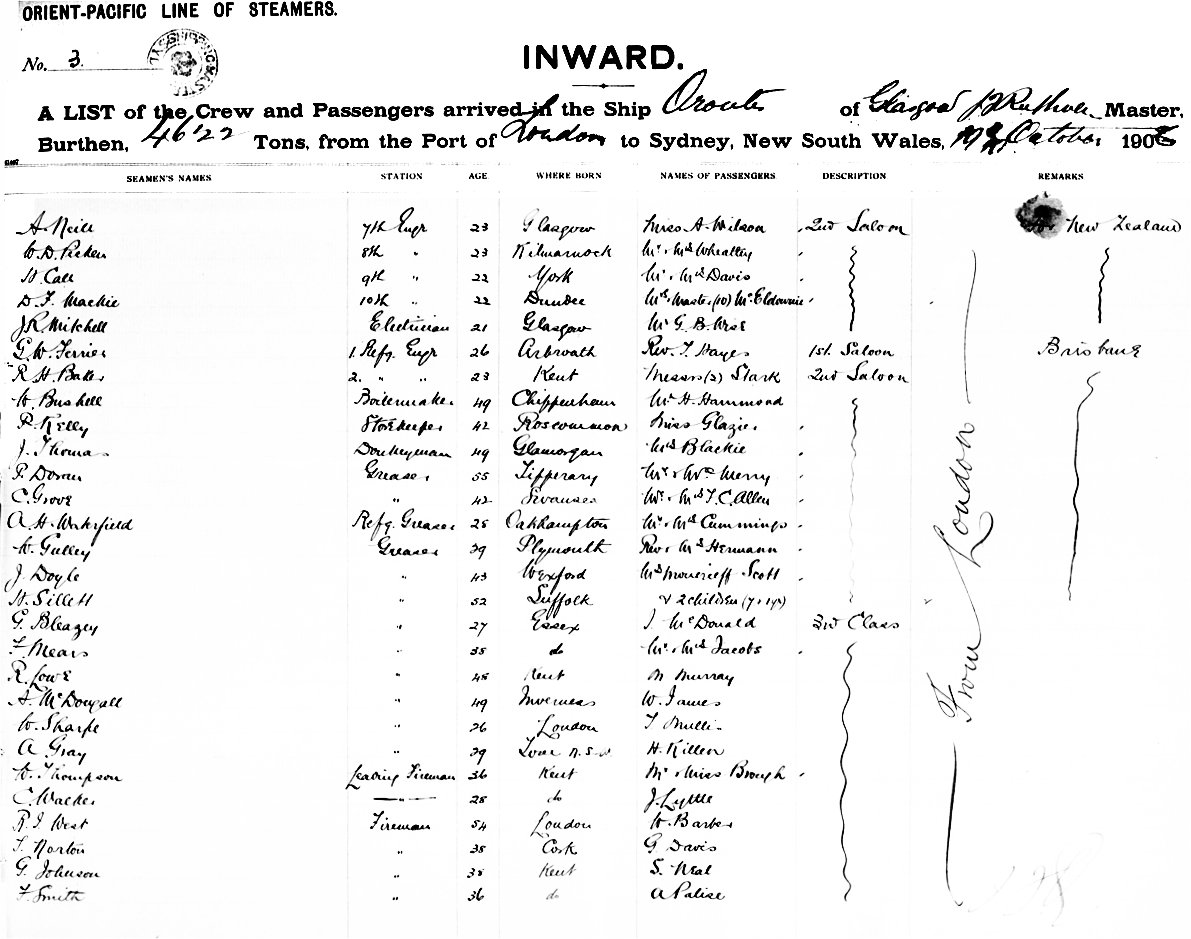 ORIENT-PACIFIC LINE OF STEAMERS.
No. 3.
INWARD.
A LIST of the Crew and Passengers arrived in the Ship Orontes of Glasgow Master,
Burthen, 4622 Tons, from the Port of London to Sydney, New South Wales, October 190
SEAMEN'S NAMES STATION AGE WHERE BORN NAMES OF PASSENGERS DESCRIPTION REMARKS
A. Neill 7th Engr 23 Glasgow Miss A. Wilson 2nd Saloon New Zealand
W. D. Picken 8th " 23 Kilmarnock Mr & Mrs Wheatley
H. Call 9th " 22 York Mr & Mrs Davis
D. F. Mackie 10th " 22 Dundee Mrs Master (10) McEldownie
J R Mitchell Electrician 21 Glasgow Mr G. B. Wise
G. W. Ferrier 1. Refg. Engr 26 Arbroath Rev. T. Hayes 1st Saloon Brisbane
R. H. Baker 2. " " 23 Kent Messrs (2) Stark 2nd Saloon
W. Bushell Boilermaker 49 Chippenham Mr H. Hammond
P. Kelly Storekeeper 42 Roscommon Miss Glazier
J. Thomas Donkeyman 49 Glamorgan Mrs Blackie
P. Doran Greaser 55 Tipperary Mr & Mrs Merry
C. Grove " 42 Swansea Mr & Mrs T. C. Allen
A. H. Wakefield Refg. Greaser 25 Oakhampton Mr & Mrs Cummings
W. Gulley Greaser 39 Plymouth Rev & Mrs Hermann
J. Doyle " 43 Wexford Mrs Moncrieff Scott
H. Sillett " 52 Suffolk & 2 children
G. Bleazey " 27 Essex J. McDonald 3rd Class
F. Mears " 35 do Mr & Mrs Jacobs
R. Lowe " 45 Kent M Murray
A. McDougall " 49 Inverness W. James
W. Sharpe " 26 London
A Gray " 39 N.S.W. H. Killen
W. Thompson Leading Fireman 36 Kent Mr & Miss Brough
C. Walker " 25 do J. Lyttle
R. J. West Fireman 54 London W. Barber
T. Norton " 35 Cork G Davis
G. Johnson " 35 Kent S. Neal
F. Smith " 36 do A Palise
From London